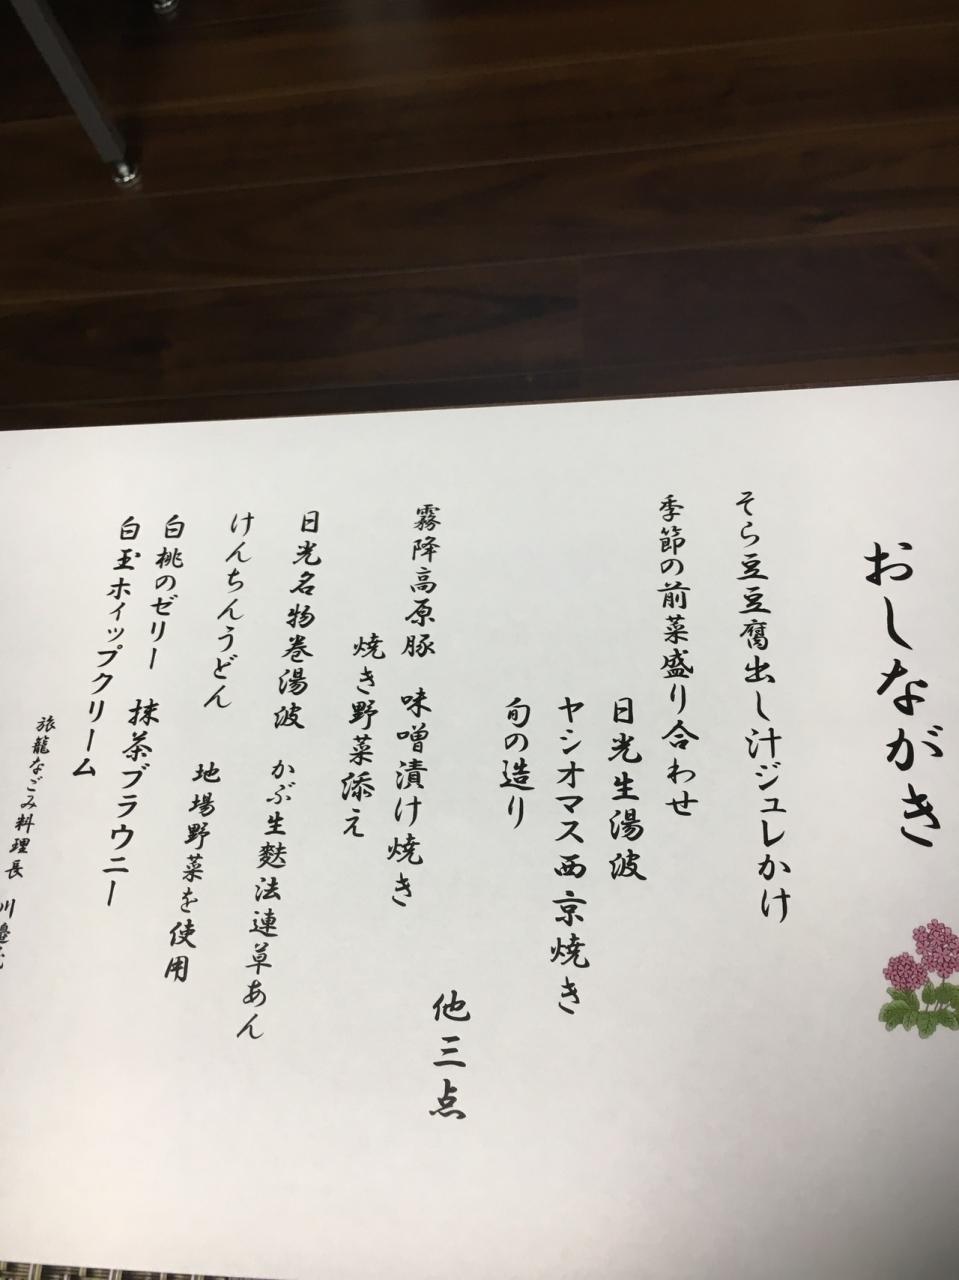 おしながき
そら豆豆腐出し汁ジュレかけ
季節の前菜盛り合わせ
日光生湯波
ヤシオマス西京焼き
旬の造り
他三点
霧降高原豚　味噌漬け焼き
焼き野菜添え
日光名物巻湯波　かぶ生麩法連草あん
けんちんうどん
地場野菜を使用
白桃のゼリー　抹茶ブラウニー
白玉ホイップクリーム
旅籠なごみ料理長　川邉